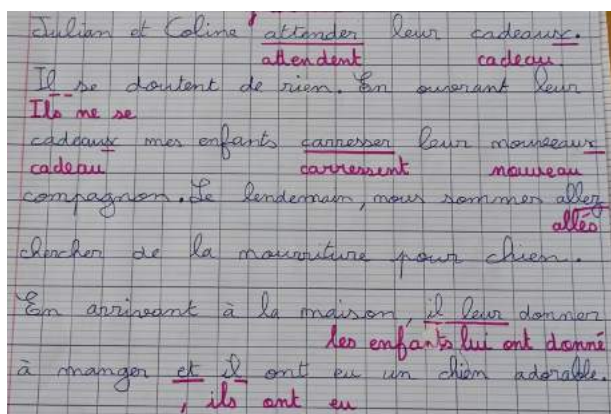 Julian et Coline attender leur cadeaux.
attendent cadeau.
Il se doutent de rien. En ouvrant leur
Ils ne se
cadeaux mes enfants carresser leur nouveaux
cadeau carressent nouveau
compagnon. Le lendemain, nous sommes allez
allés
chercher de la nourriture pour chien.
En arrivant à la maison, il leur donner
les enfants lui ont donné
à manger et il ont eu un chien adorable.
, ils ont eu